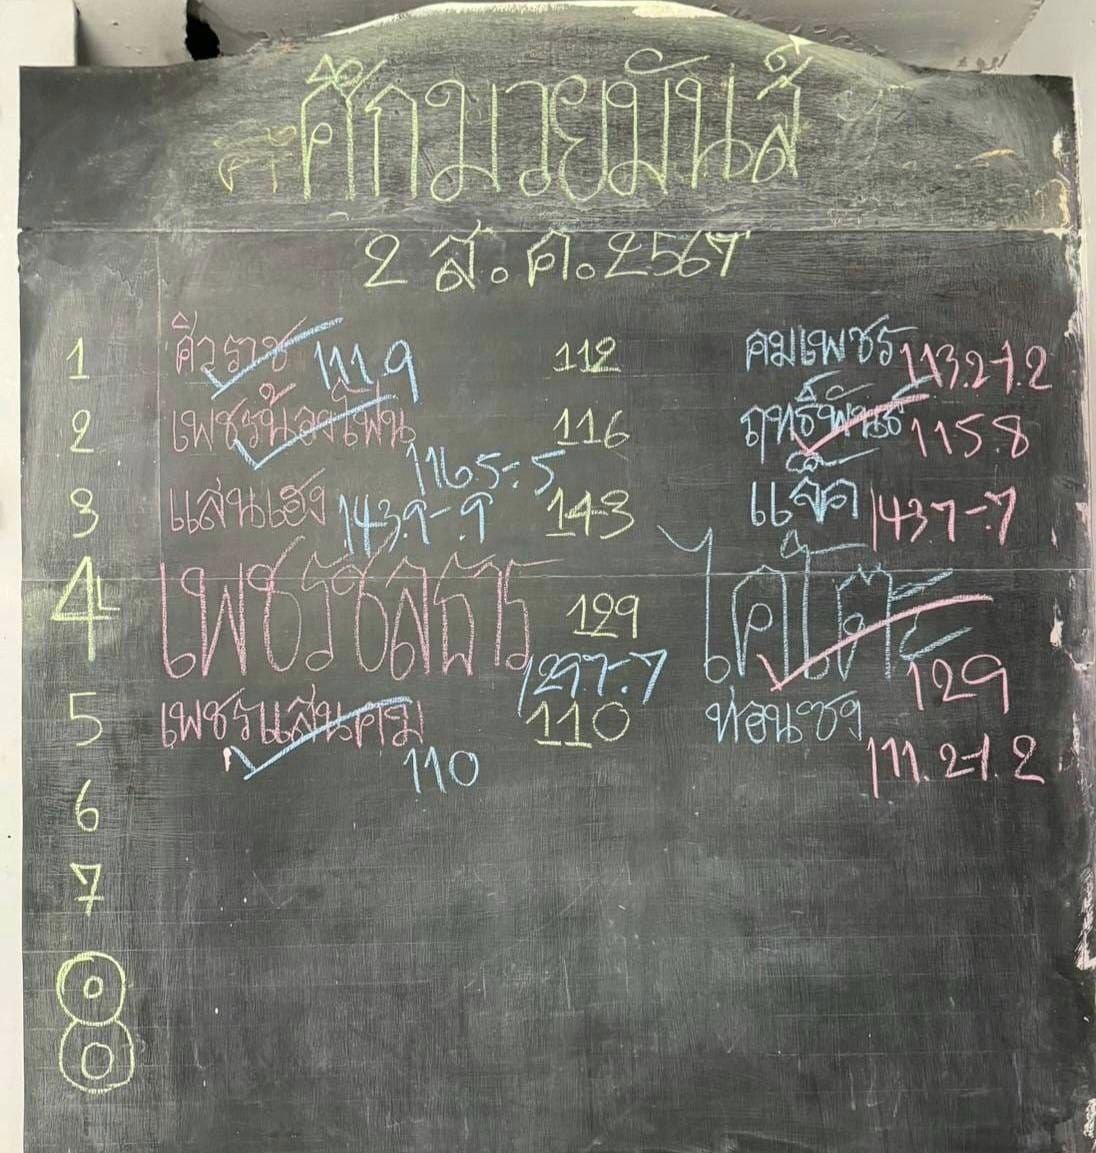 ศึกมวยมันส์
2 ส.ค. 2567
1 ศิวราช 111.9 112 คมเพชร 113.2-1.2
2 เพชรน้องโฟน 116.5-.5 116 ฤทธิ์พันธ์ 115.8
3 แสนเฮง 143.9-.9 143 แจ็ค 143.7-.7
4 เพชรชลธาร 129.7-.7 129 ไคโตะ 129
5 เพชรแสนคม 110 110 ท่อนซุง 111.2-1.2
6
7
8